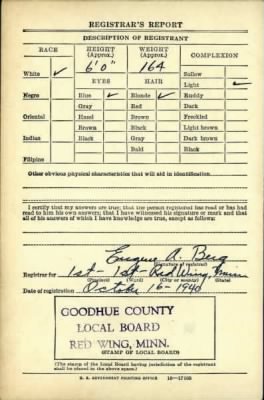 REGISTRAR'S REPORT
DESCRIPTION OF REGISTRANT
RACE HEIGHT (Approx.) WEIGHT (Approx.) COMPLEXION
White ✓ 6'0" 164 Sallow
EYES HAIR Light ✓
Negro Blue ✓ Blonde ✓ Ruddy
Gray Red Dark
Oriental Hazel Brown Freckled
Brown Black Light brown
Indian Black Gray Dark brown
Bald Black
Filipino
Other obvious physical characteristics that will aid in identification
I certify that my answers are true; that the person registered has read or has had
read to him his own answers; that I have witnessed his signature or mark and that
all of his answers of which I have knowledge are true, except as follows:
Eugene A. Berg
(Signature of registrar)
Registrar for 1st - 1st - Red Wing, Minn
(Precinct) (Ward) (City or county) (State)
Date of registration October 16 - 1940
GOODHUE COUNTY
LOCAL BOARD
RED WING, MINN.
(STAMP OF LOCAL BOARD)
(The stamp of the Local Board having jurisdiction of the registrant
shall be placed in the above space.)
U. S. GOVERNMENT PRINTING OFFICE 16—17105